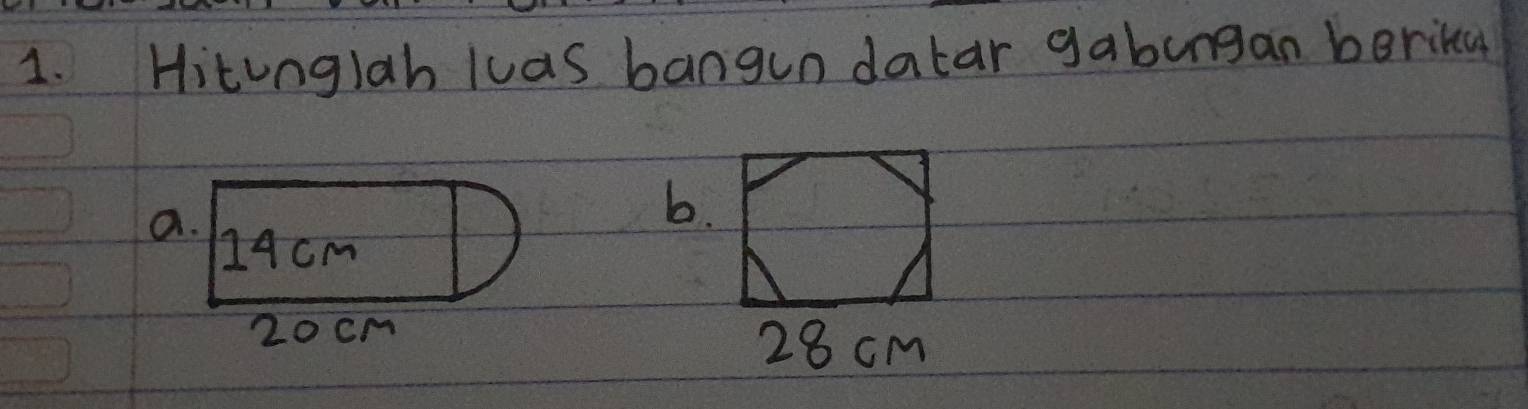 1. Hitunglah luas bangun datar gabungan berikut
a. 14 cm
20 cm
b.
28 cm